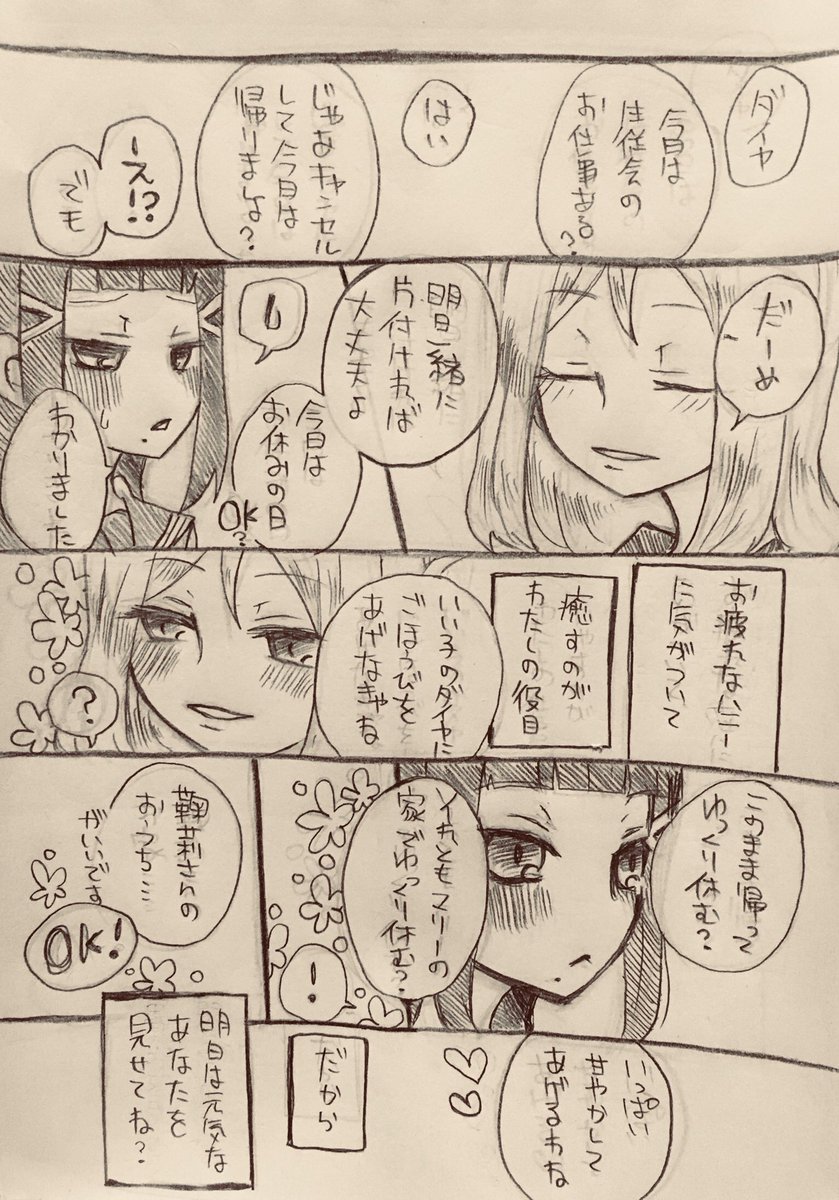 ダイヤ
今日は
生徒会の
お仕事ある?
はい
じゃあキャンセル
して今日は
帰りましょ?
ーえ!?
でも
だーめ
明日一緒に
片付ければ
大丈夫よ
!
今日は
お休みの日
OK?
わかりました
お疲れなムードに
気がついて
癒すのが
わたしの役目
いい子のダイヤに
ごほうびを
あげなきゃね
?
このまま帰って
ゆっくり休む?
ソれともマリーの
家でゆっくり休む?
!
鞠莉さんの
おうち…
がいいです
OK!
いっぱい
甘やかして
あげるわね
だから
明日は元気な
あなたを
見せてね?